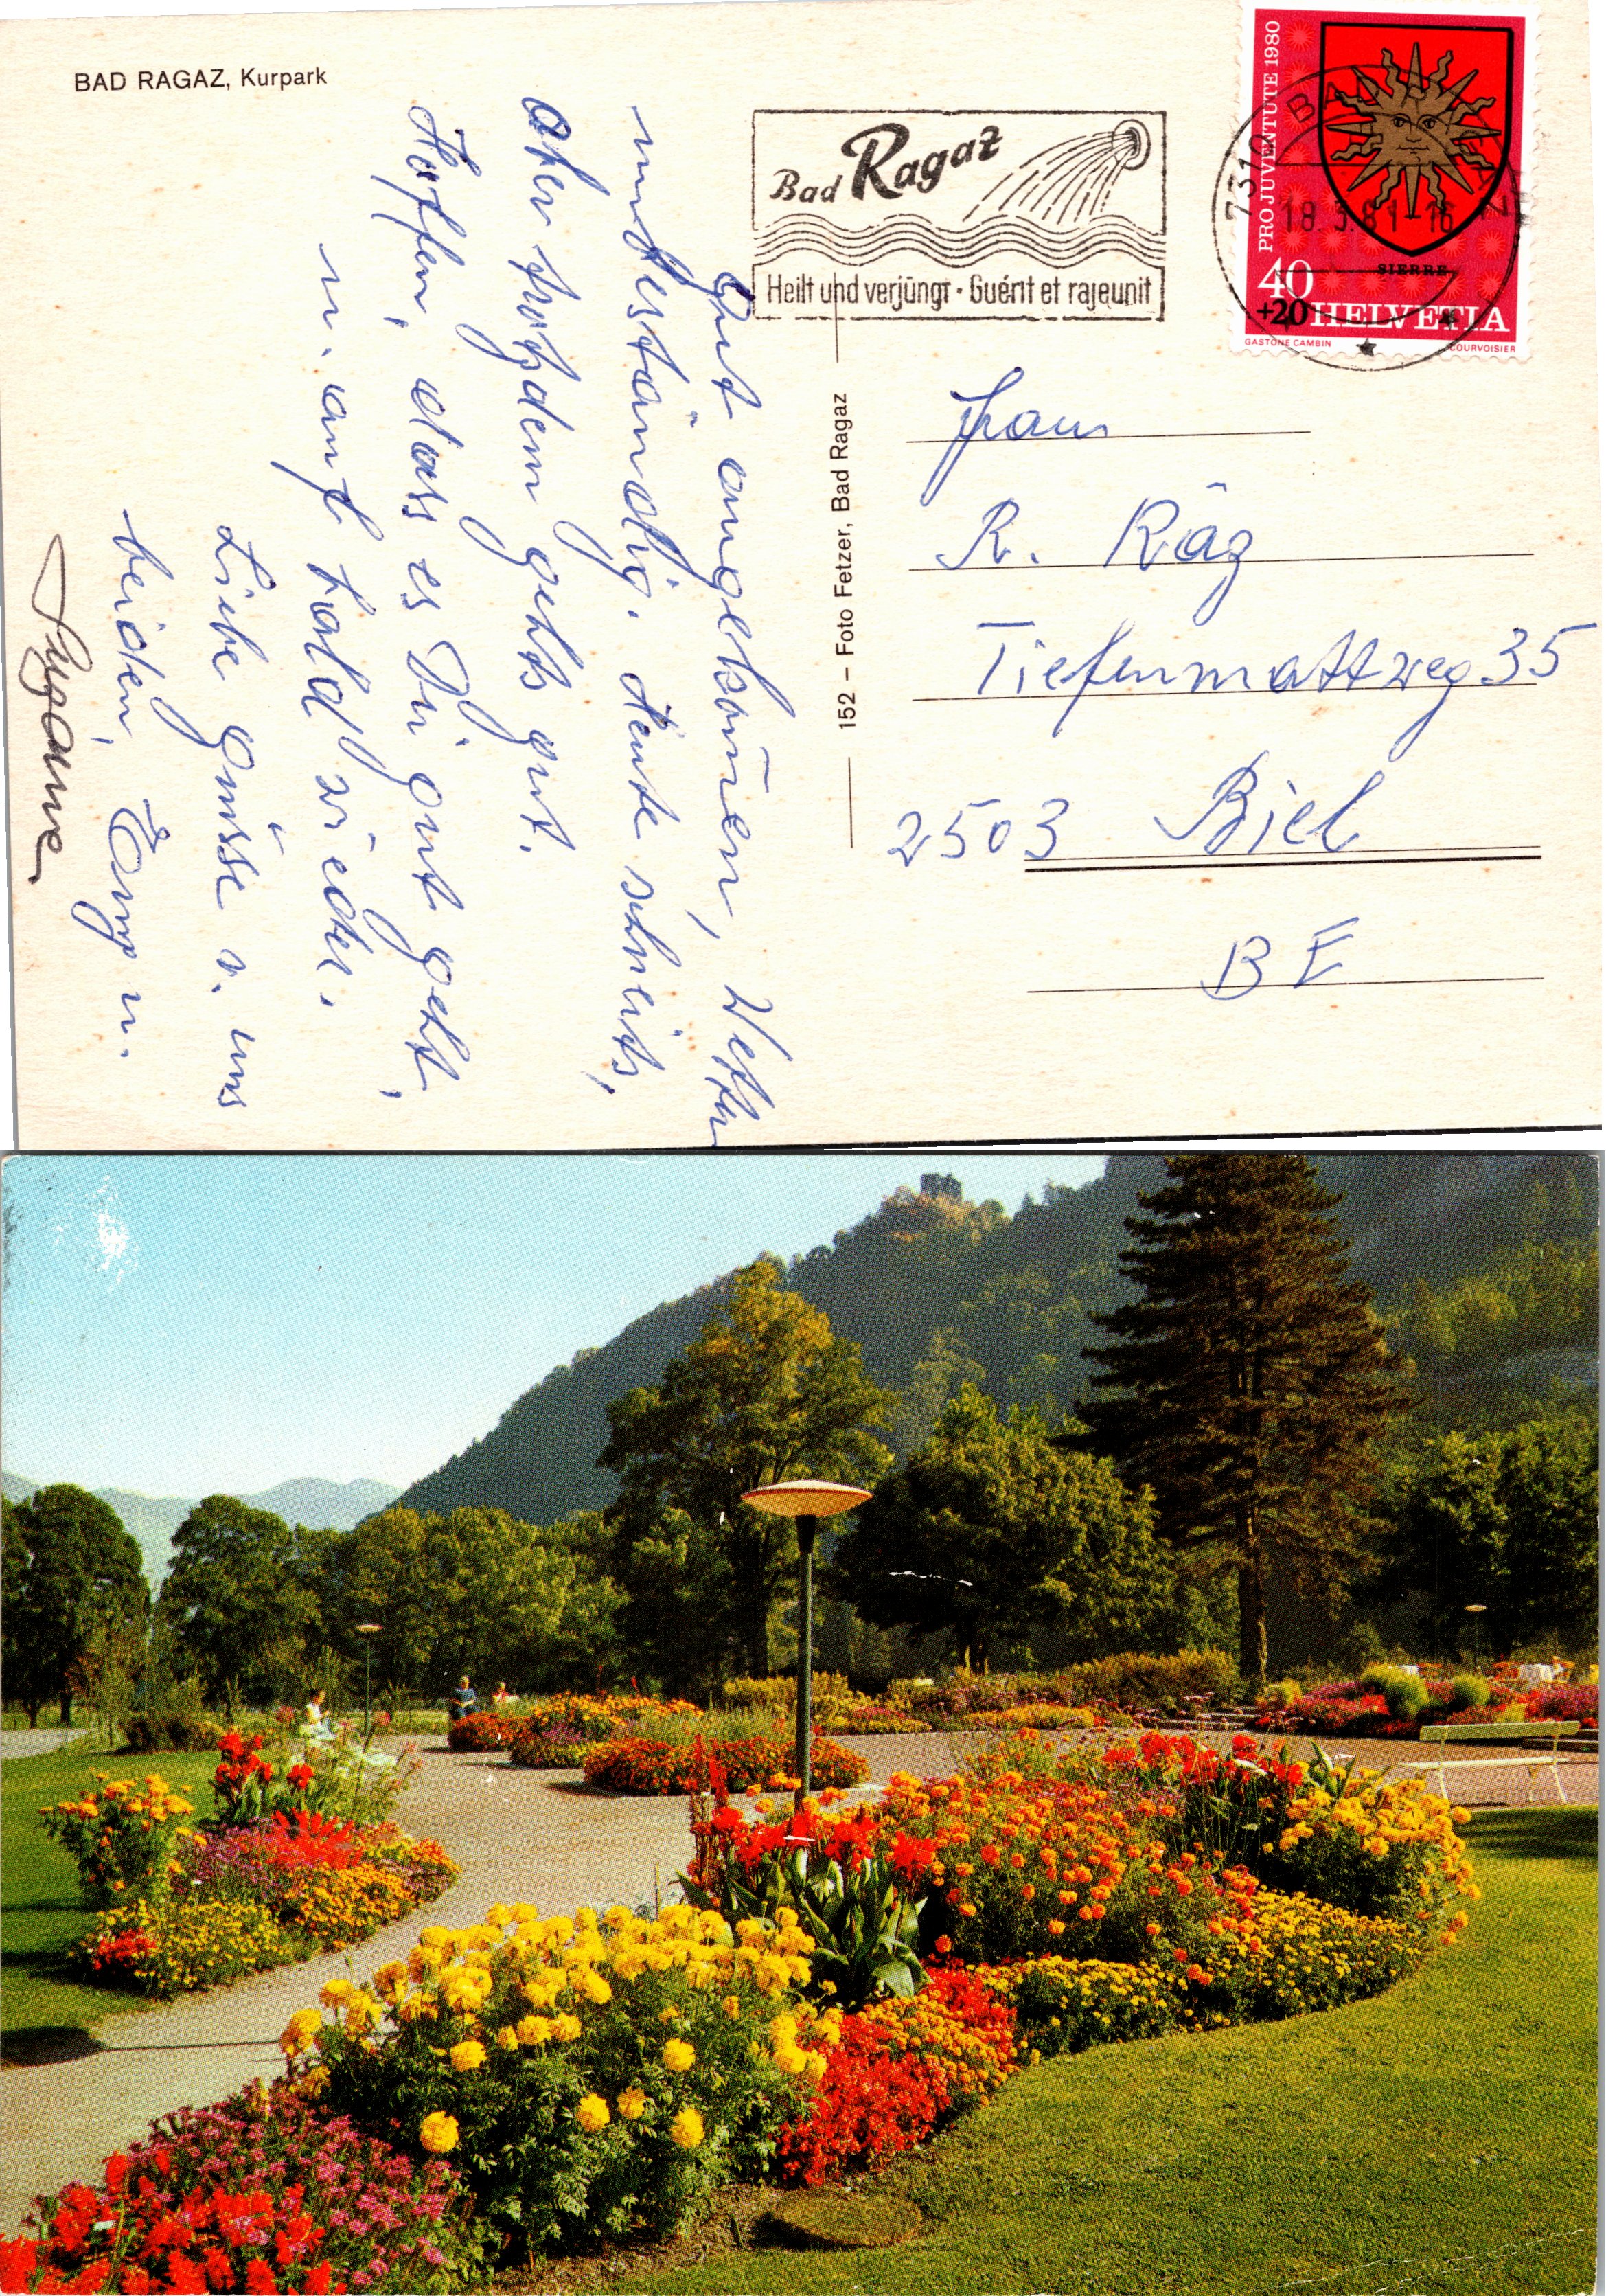 BAD RAGAZ, Kurpark
Bad Ragaz
Heilt und verjüngt · Guérit et rajeunit
PRO JUVENTUTE 1980
7310 BAD RAGAZ
18.3.81-16
SIERRE
40
+20 HELVETIA
GASTONE CAMBIN COURVOISIER
Gut angekommen, Wetter
unbeständig. Heute schneits,
aber trotzdem gehts gut.
Hoffen, dass es Dir gut geht,
u. auf bald wieder.
Liebe Grüsse v. uns
beiden, u.
152 – Foto Fetzer, Bad Ragaz
Frau
R. Räz
Tiefenmattweg 35
2503 Biel
BE